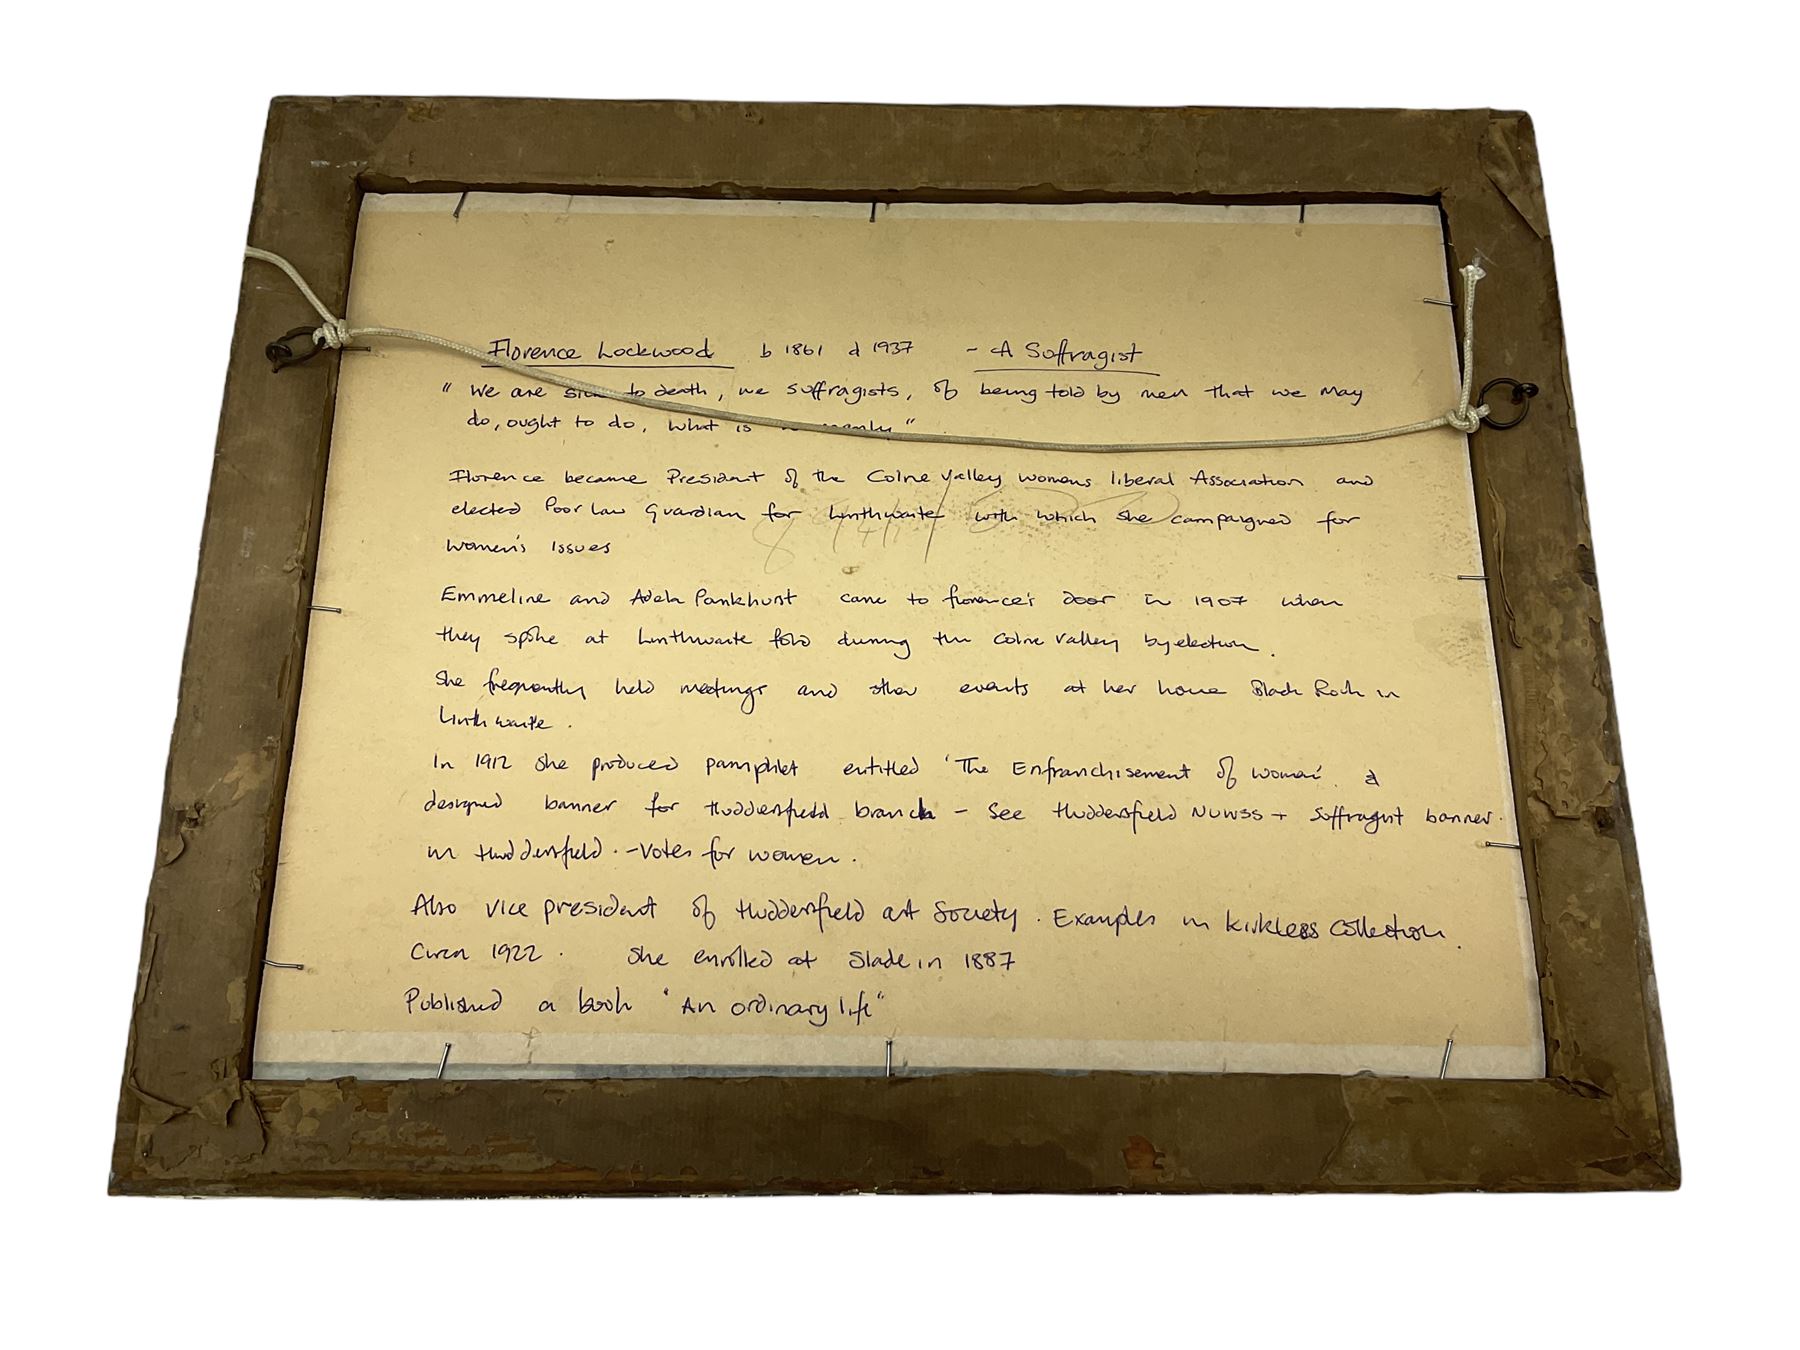 Florence Lockwood b 1861 d 1937 - A Suffragist
" We are sick to death, we suffragists, of being told by men that we may
do, ought to do, what is womanly "
Florence became President of the Colne Valley womens liberal Association and
elected Poor Law Guardian for Linthwaite with which she campaigned for
women's issues
Emmeline and Adela Pankhurst came to florence's door in 1907 when
they spoke at Linthwaite fold during the Colne Valley byelection.
She frequently held meetings and other events at her home Black Rock in
Linthwaite.
In 1912 she produced pamphlet entitled 'The Enfranchisement of women'. &
designed banner for Huddersfield branch - See Huddersfield NUWSS + Suffragist banner.
in Huddersfield. - Votes for women.
Also vice president of Huddersfield art Society. Examples in kirklees Collection.
Circa 1922. She enrolled at Slade in 1887
Published a book "An ordinary life"